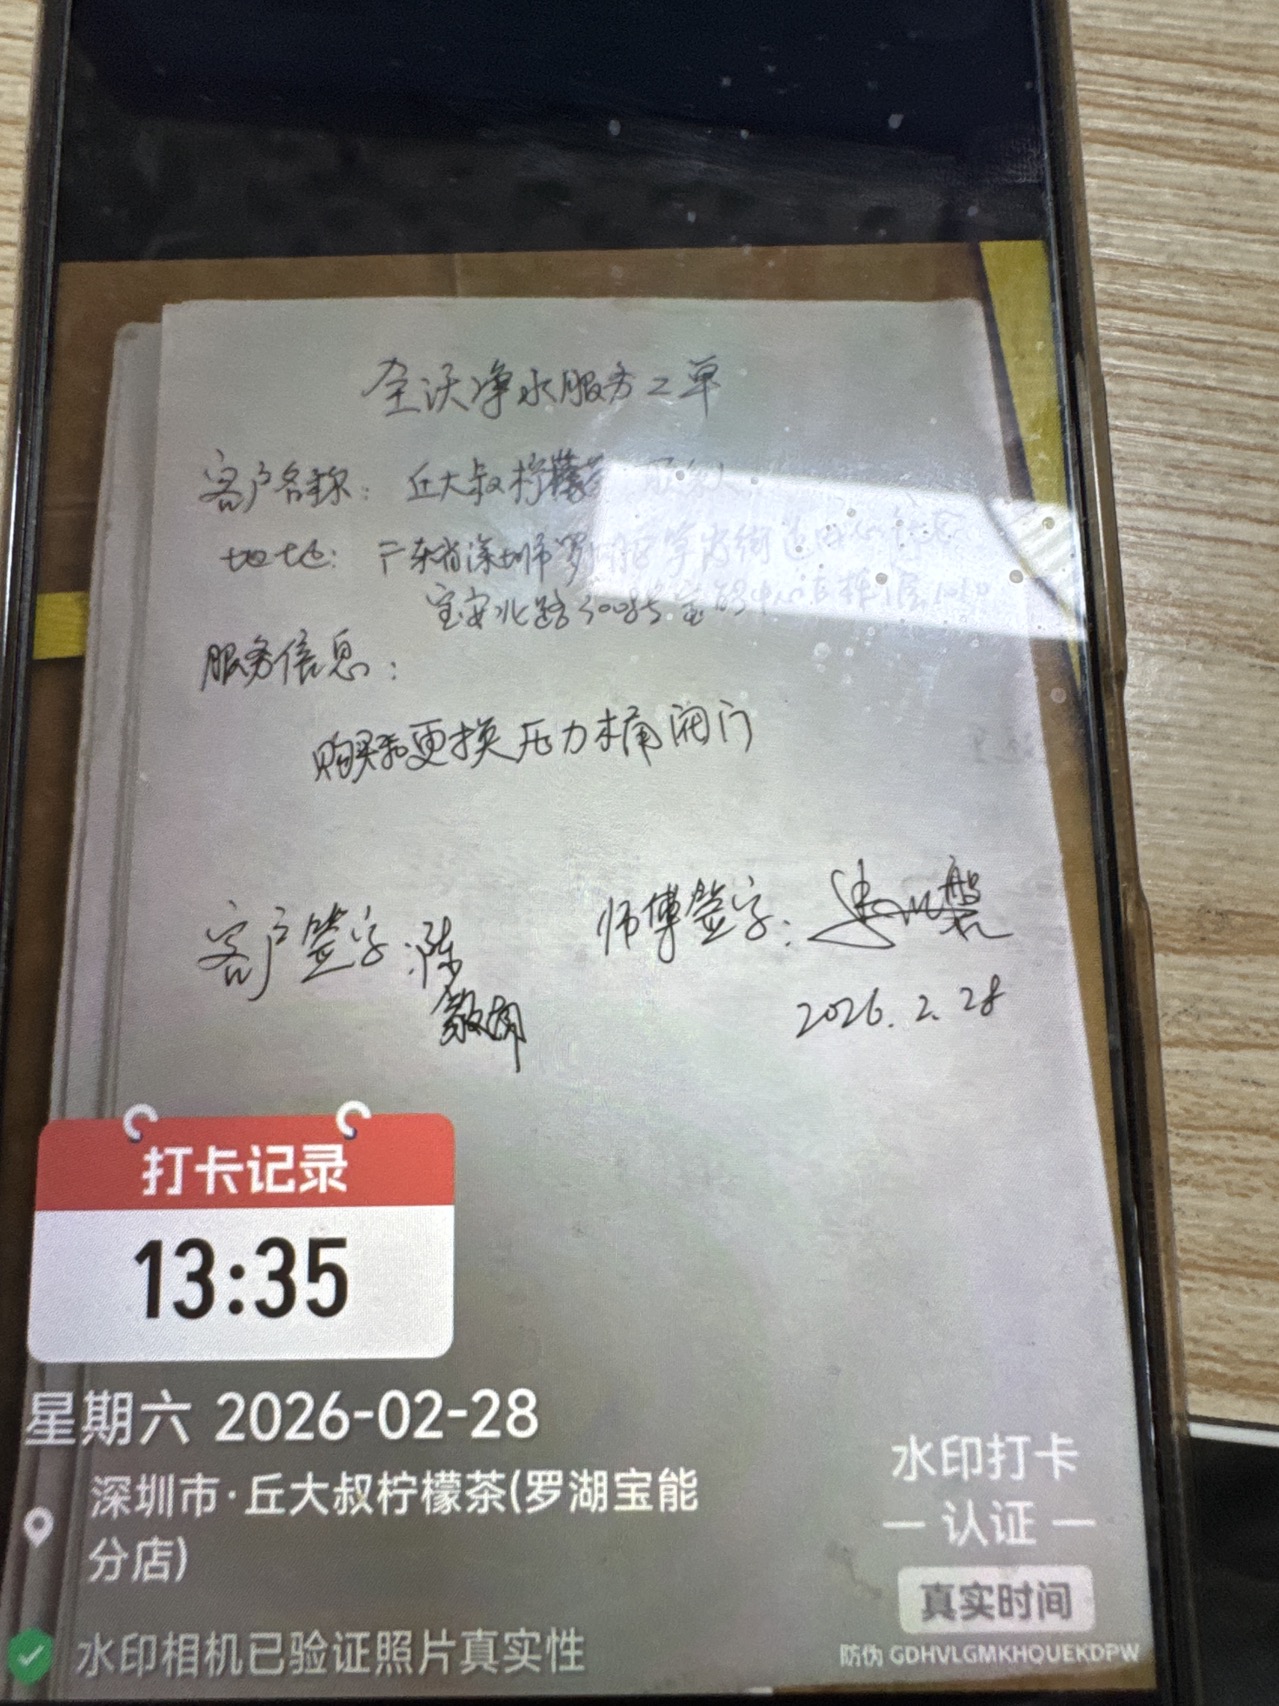 全沃净水服务工单
客户名称：丘大叔柠檬茶
地址：广东省深圳市罗湖区笋岗街道田心社区
宝安北路3008号宝能中心
服务信息：
购买和更换压力桶阀门
客户签字：陈
师傅签字：
2026.2.28
打卡记录
13:35
星期六 2026-02-28
深圳市·丘大叔柠檬茶(罗湖宝能
分店)
水印相机已验证照片真实性
水印打卡
— 认证 —
真实时间
防伪 GDHVLGMKHQUEKDPW